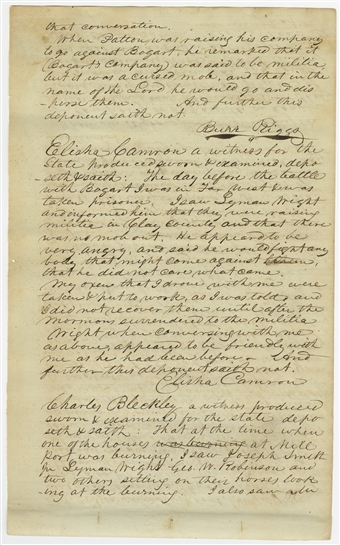 that conversation.
When Patton was raising his company
to go against Bogart, he remarked that it
(Bogart's Company) was said to be militia,
but it was a cursed mob, and that in the
name of the Lord he would go and dis
perse them. And further this
deponent saith not.
Burr Riggs
Elisha Camron a witness for the
State produced sworn & examined, depo
seth & saith: The day before the battle
with Bogart I was in Far West & was
taken prisoner, I saw Lyman Wight
and informed him that they were raising
militia in Clay County and that there
was no mob out. He appeared to be
very angry, and said he would fight any
body that might come against them,
that he did not care what came.
My oxen that I drove with me were
taken & put to work, as I was told, and
I did not recover them until after the
Mormons surrendered to the militia
Wight when conversing with me
as above, appeared to be friendly with
me as he had been before. And
further this deponent saith not.
Elisha Camron
Charles Bleckley a witness produced
sworn & examined for the state depo
seth & saith: That at the time when
one of the houses was burning at Mill
port was burning, I saw Joseph Smith
Jr Lyman Wight Geo. W. Robinson and
two others sitting on their horses look
ing at the burning. I also saw a